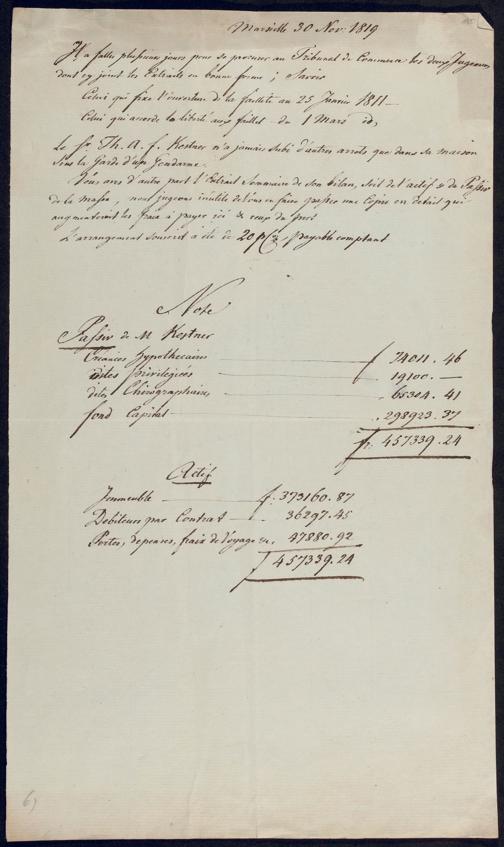 Marseille 30 Nov. 1819
Il a fallu plusieurs jours pour se procurer au Tribunal de Commerce les deux Jugemens
dont cy joint les Extraits en bonne forme ; Savoir
Celui qui fixe l'ouverture de la faillite au 25 Janvier 1811 —
Celui qui accorde la liberté aux faillis du 1 Mars do
Le Sr. Th. A. f. Kostner n'a jamais subi d'autres arrets que dans sa maison
sous la Garde d'un Gendarme.
Vous avés d'autre part l'Extrait Sommaire de son bilan, soit de l'actif & du Passif
de la masse, nous jugeons inutile de vous en faire passer une Copie en detail qui
augmenteroit les fraix à payer ici &
L'arrangement souscrit a été de 20 p% payable comptant
Note
Passif de M Kostner
Créances hypothecaires — f 74011. 46
dites privilegiées — 19100. —
dites Chirographaires — 65304. 41
fond Capital — 298923. 37
fr. 457339. 24
Actif
Immeuble — f. 373160. 87
Debiteurs par Contrat — 36297. 45
Pertes, depenses, fraix de Voyage &c. 47880. 92
f 457339. 24